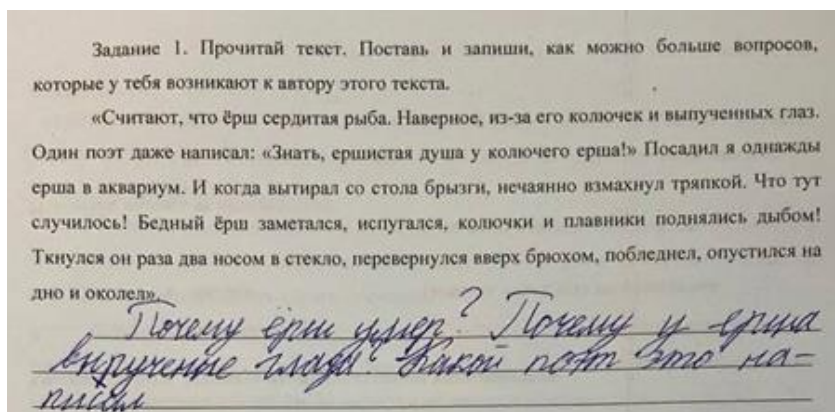 Задание 1. Прочитай текст. Поставь и запиши, как можно больше вопросов,
которые у тебя возникают к автору этого текста.
«Считают, что ёрш сердитая рыба. Наверное, из-за его колючек и выпученных глаз.
Один поэт даже написал: «Знать, ершистая душа у колючего ерша!» Посадил я однажды
ерша в аквариум. И когда вытирал со стола брызги, нечаянно взмахнул тряпкой. Что тут
случилось! Бедный ёрш заметался, испугался, колючки и плавники поднялись дыбом!
Ткнулся он раза два носом в стекло, перевернулся вверх брюхом, побледнел, опустился на
дно и околел».
Почему ёрш умер? Почему у ерша
выпучение глаза? Какой поэт это на-
писал